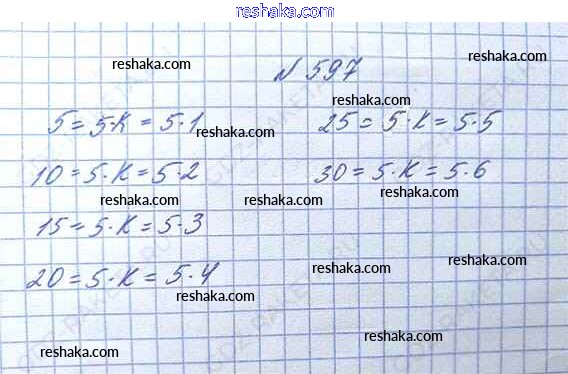 reshaka.com
reshaka.com
reshaka.com
N 597
reshaka.com
5 = 5·K = 5·1
25 = 5·K = 5·5
reshaka.com
reshaka.com
10 = 5·K = 5·2
30 = 5·K = 5·6
reshaka.com
reshaka.com
reshaka.com
15 = 5·K = 5·3
20 = 5·K = 5·4
reshaka.com
reshaka.com
reshaka.com
reshaka.com
reshaka.com